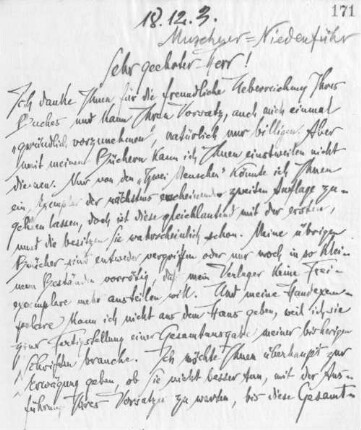 171
18.12.3.
Niedenführ
Sehr geehrter Herr!
Ich danke Ihnen für die freundliche Ueberreichung Ihres
Buches und kann Ihren Vorsatz, auch mich einmal
„gründlich vorzunehmen“, natürlich nur billigen. Aber
mit meinen Büchern kann ich Ihnen einstweilen nicht
dienen. Nur von den „Zwei Menschen“ könnte ich Ihnen
ein Exemplar der nächstens erscheinenden zweiten Auflage zu-
gehen lassen, doch ist diese gleichlautend mit der ersten,
und die besitzen Sie wahrscheinlich schon. Meine übrigen
Bücher sind entweder vergriffen oder nur noch in so klei-
nen Beständen vorrätig, daß mein Verleger keine Frei-
exemplare mehr austeilen will. Und meine Handexem-
plare kann ich nicht aus dem Haus geben, weil ich sie
zur Fertigstellung einer Gesamtausgabe meiner bisherigen
Schriften brauche. Ich möchte Ihnen überhaupt zur
Erwägung geben, ob Sie nicht besser tun, mit der Aus-
führung Ihres Vorsatzes zu warten, bis diese Gesamt-